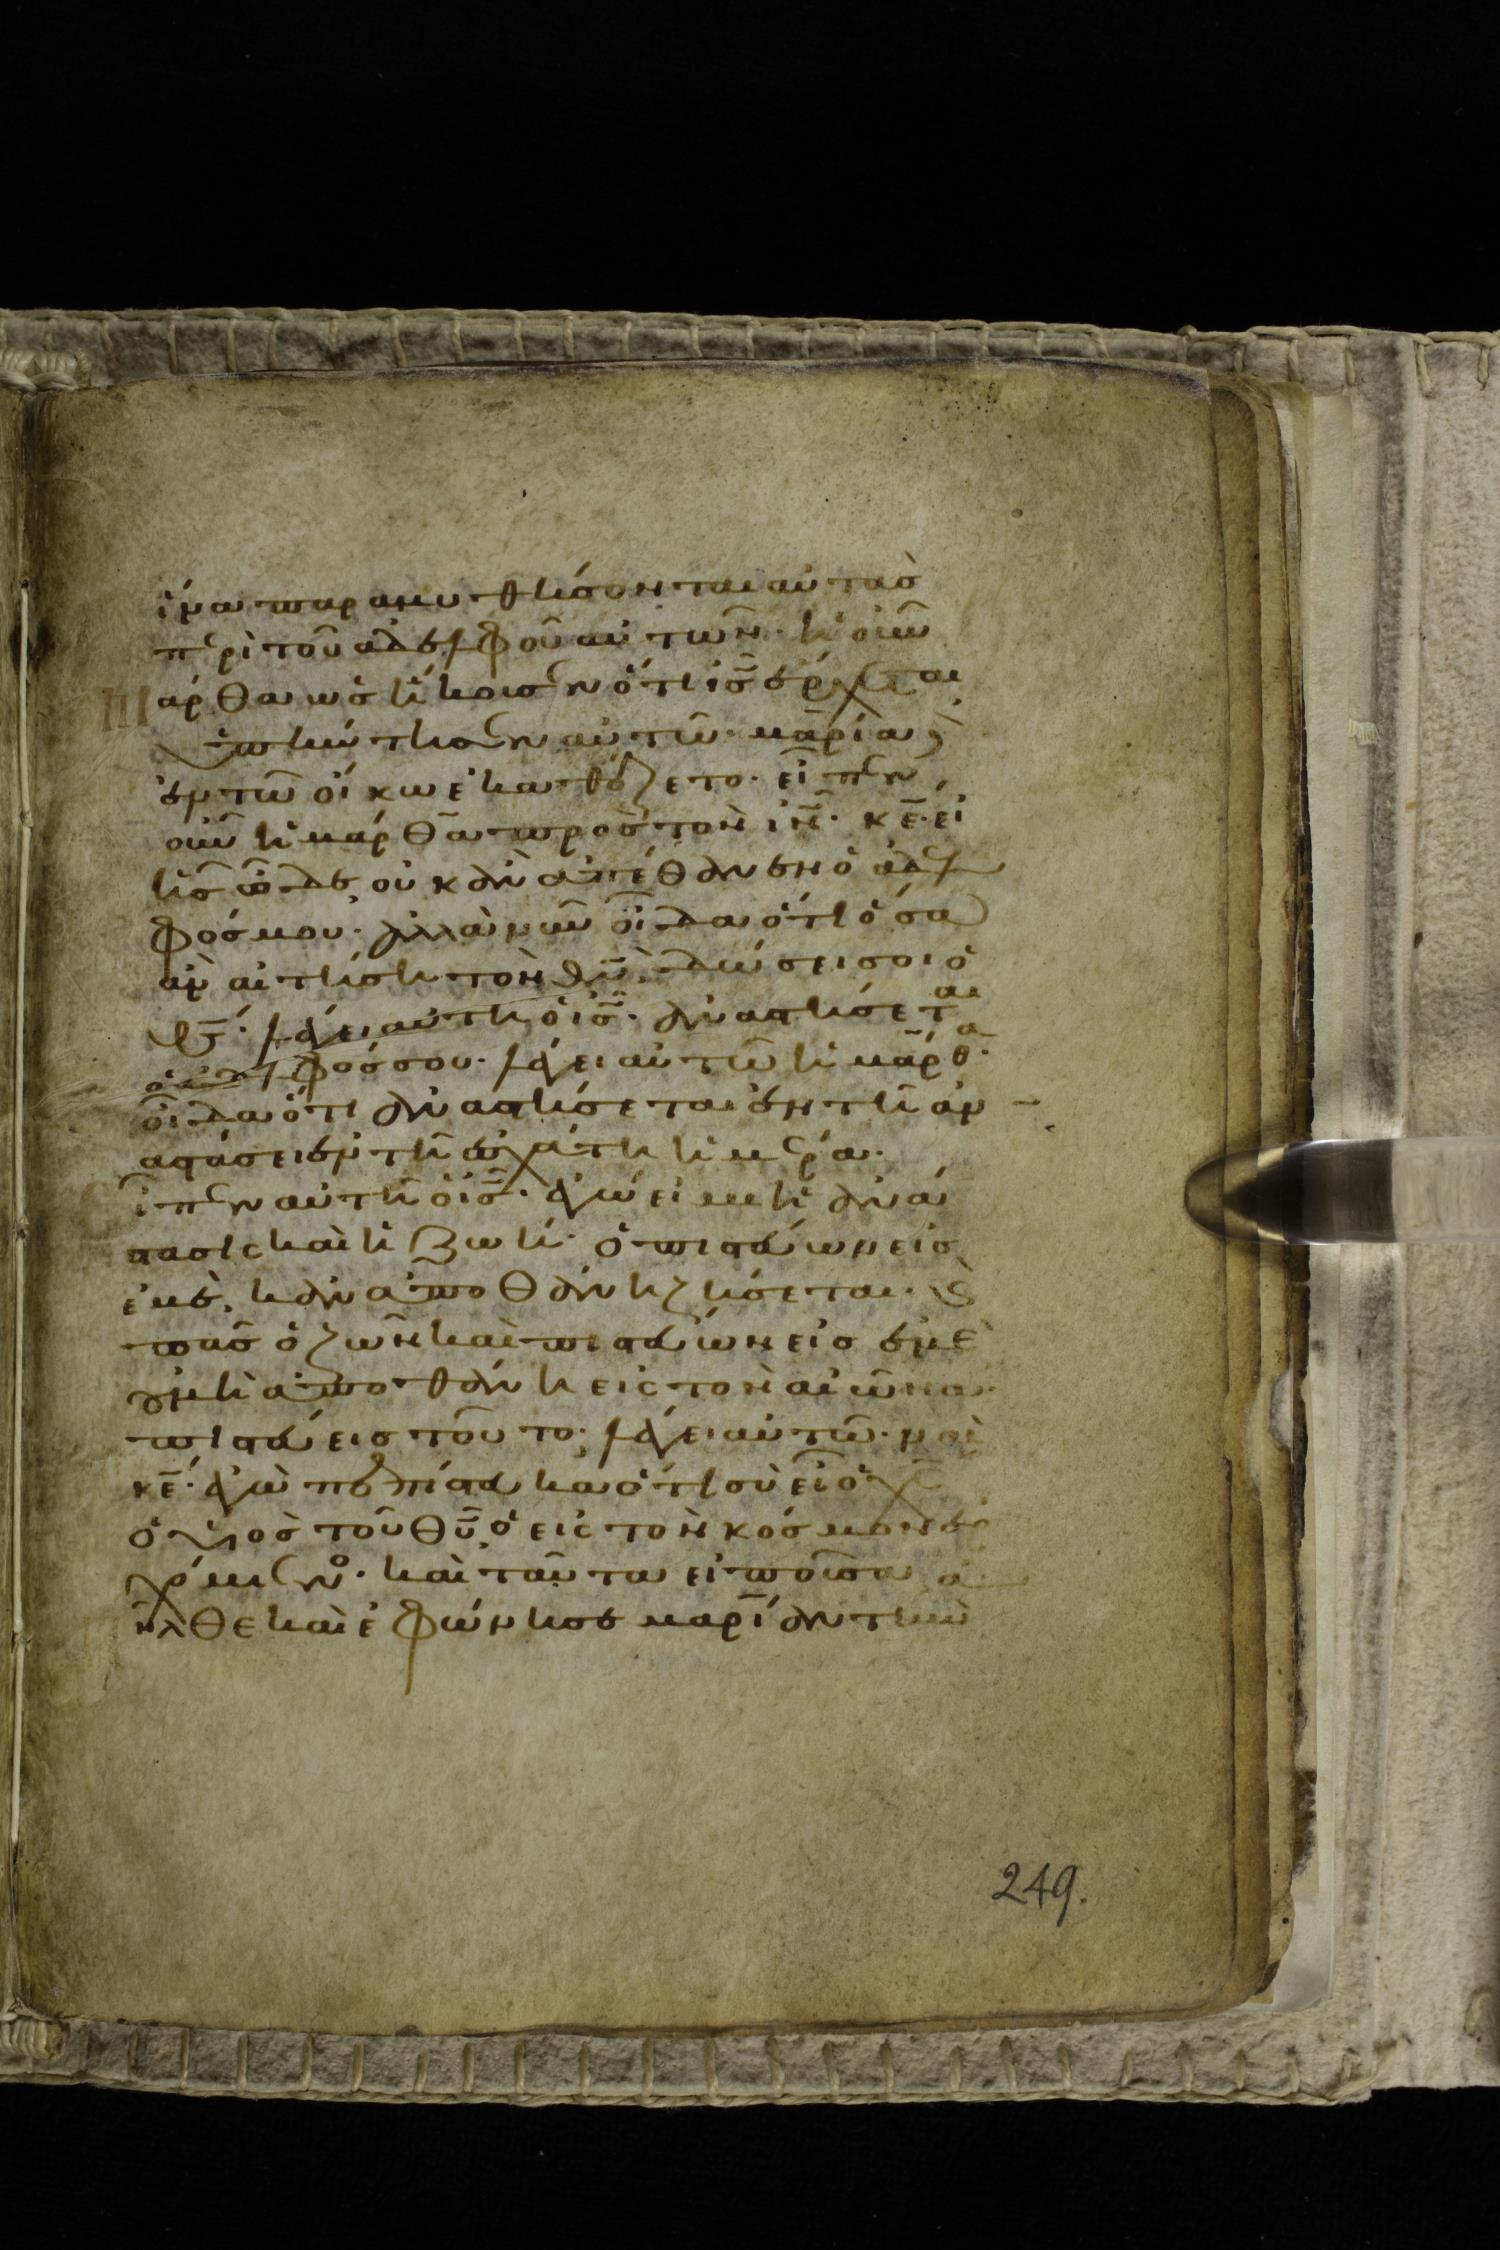 ἵνα παραμυθήσονται αὐτὰς
περὶ τοῦ ἀδελφοῦ αὐτῶν· ἡ οὖν
Μάρθα ὡς ἤκουσεν ὅτι ις̅ ἔρχεται
ὑπήντησεν αὐτῶ· μαρία δὲ
ἐν τῶ οἴκω ἐκαθέζετο· εἶπεν
οὖν ἡ μάρθα πρὸς τὸν ιν̅· κε̅· εἰ
ἦς ὧδε, οὐκ ἂν ἀπέθανεν ὁ ἀδελ
φός μου· ἀλλὰ νῦν οἶδα ὅτι ὅσα
ἂν αἰτήση τὸν θν̅, δώσει σοι ὁ
θς̅· λέγει αὐτῆ ὁ ις̅· ἀναστήσεται
ὁ ἀδελφός σου· λέγει αὐτῶ ἡ μάρθα·
οἶδα ὅτι ἀναστήσεται ἐν τῆ ἀν
αστάσει ἐν τῆ ἐσχάτη ἡμέρα·
Εἶπεν αὐτῆ ὁ ις̅· ἐγώ εἰμι ἡ ἀνά
στασις καὶ ἡ ζωή· ὁ πιστεύων εἰς
ἐμέ, κἂν ἀποθάνη ζήσεται· καὶ
πᾶς ὁ ζῶν καὶ πιστεύων εἰς ἐμὲ
οὐ μὴ ἀποθάνη εἰς τὸν αἰῶνα·
πιστεύεις τοῦτο; λέγει αὐτῶ· ναὶ
κε̅· ἐγὼ πεπίστευκα ὅτι σὺ εἶ ὁ χς̅
ὁ υἱὸς τοῦ θυ̅, ὁ εἰς τὸν κόσμον ἐρ
χόμενος· καὶ ταῦτα εἰποῦσα ἀ
πῆλθε καὶ ἐφώνησε μαρίαν τὴν
249.